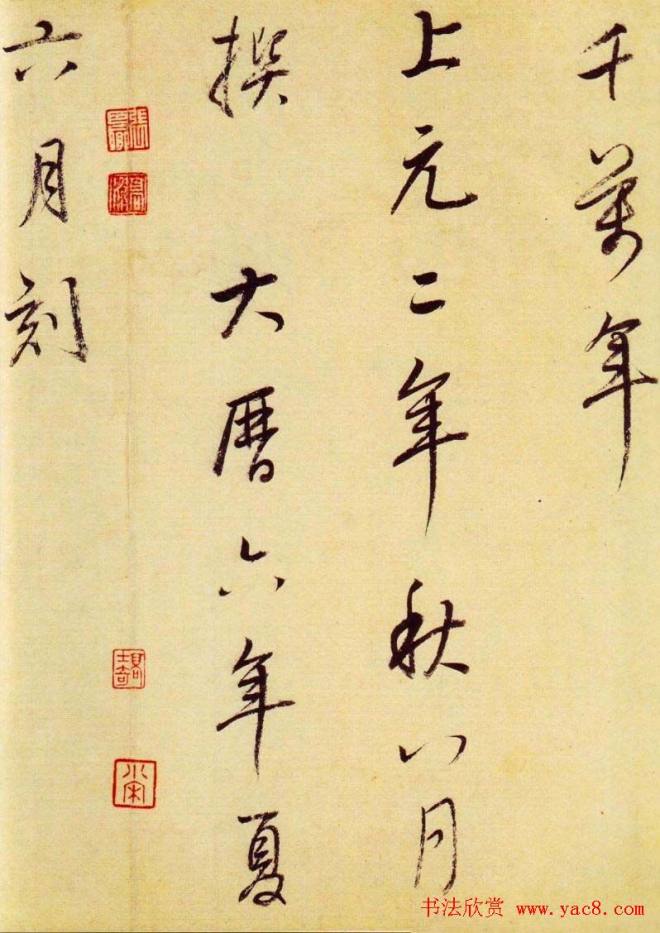 千萬年
上元二年秋八月
撰 大暦六年夏
六月刻
书法欣赏 www.yac8.com